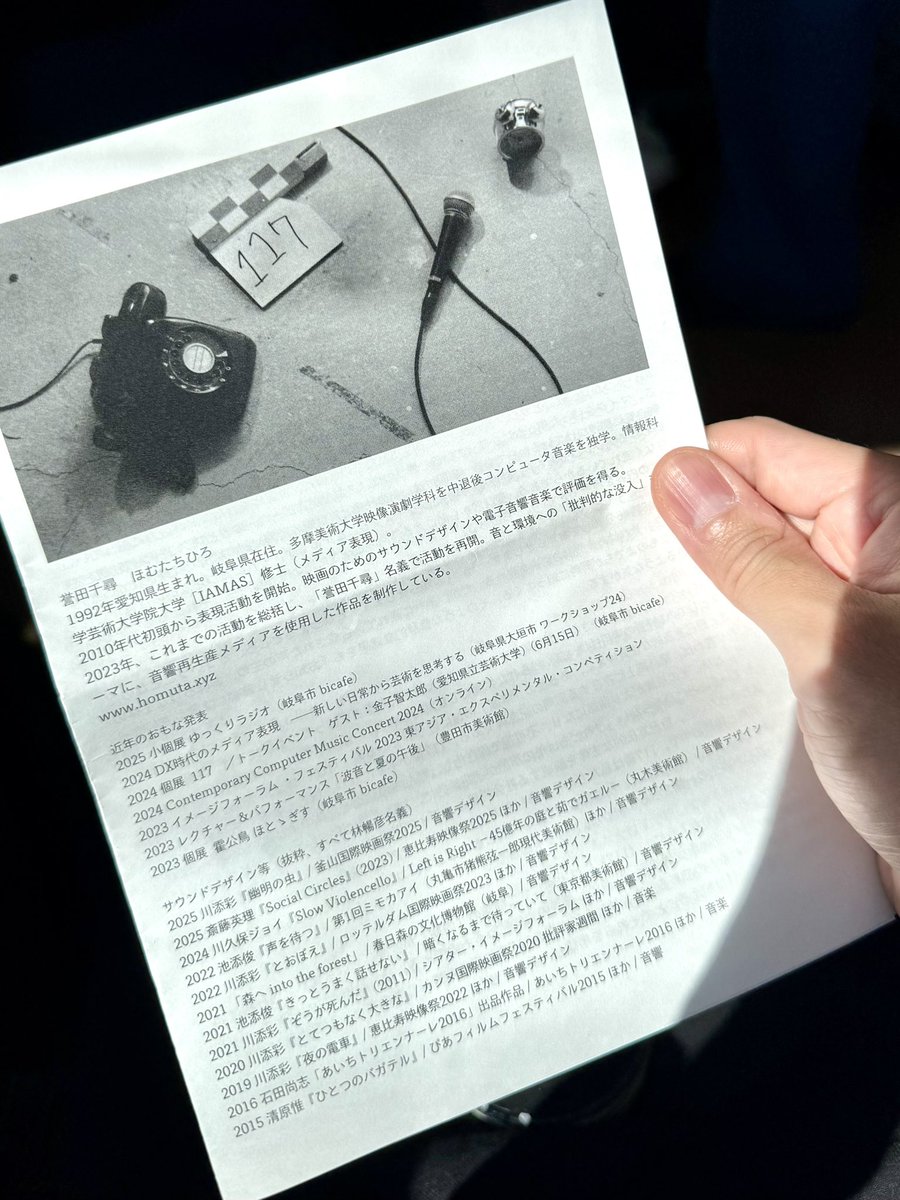 117
誉田千尋　ほむたちひろ
1992年愛知県生まれ。岐阜県在住。多摩美術大学映像演劇学科を中退後コンピュータ音楽を独学。情報科
学芸術大学院大学［IAMAS］修士（メディア表現）。
2010年代初頭から表現活動を開始。映画のためのサウンドデザインや電子音響音楽で評価を得る。
2023年、これまでの活動を総括し、「誉田千尋」名義で活動を再開。音と環境への「批判的な没入」
ーマに、音響再生産メディアを使用した作品を制作している。
www.homuta.xyz
近年のおもな発表
2025 小個展 ゆっくりラジオ（岐阜市 bicafe）
2024 DX時代のメディア表現　——新しい日常から芸術を思考する（岐阜県大垣市 ワークショップ24）
2024 個展　117　／トークイベント　ゲスト：金子智太郎（愛知県立芸術大学）（6月15日）　（岐阜市 bicafe）
2024 Contemporary Computer Music Concert 2024（オンライン）
2023 イメージフォーラム・フェスティバル 2023 東アジア・エクスペリメンタル・コンペティション
2023 レクチャー＆パフォーマンス「波音と夏の午後」（豊田市美術館）
2023 個展　霍公鳥 ほとゝぎす（岐阜市 bicafe）
サウンドデザイン等（抜粋、すべて林暢彦名義）
2025 川添彩『幽明の虫』/ 釜山国際映画祭2025 / 音響デザイン
2025 斎藤英理『Social Circles』（2023）/ 恵比寿映像祭2025 ほか / 音響デザイン
2024 川久保ジョイ『Slow Violencello』/ Left is Right −45億年の庭と茹でガエルー（丸木美術館）/ 音響デザイン
2022 池添俊『声を待つ』/ 第1回ミモカアイ（丸亀市猪熊弦一郎現代美術館）ほか / 音響デザイン
2022 川添彩『とおぼえ』/ ロッテルダム国際映画祭2023 ほか / 音響デザイン
2021 「森へ into the forest」/ 春日森の文化博物館（岐阜）/ 音響デザイン
2021 池添俊『きっとうまく話せない』/ 暗くなるまで待っていて（東京都美術館）/ 音響デザイン
2021 川添彩『ぞうが死んだ』（2011）/ シアター・イメージフォーラム ほか / 音響デザイン
2020 川添彩『とてつもなく大きな』/ カンヌ国際映画祭2020 批評家週間 ほか / 音楽
2019 川添彩『夜の電車』/ 恵比寿映像祭2022 ほか / 音響デザイン
2016 石田尚志「あいちトリエンナーレ2016」出品作品 / あいちトリエンナーレ2016 ほか / 音楽
2015 清原惟『ひとつのバガテル』/ ぴあフィルムフェスティバル2015 ほか / 音響